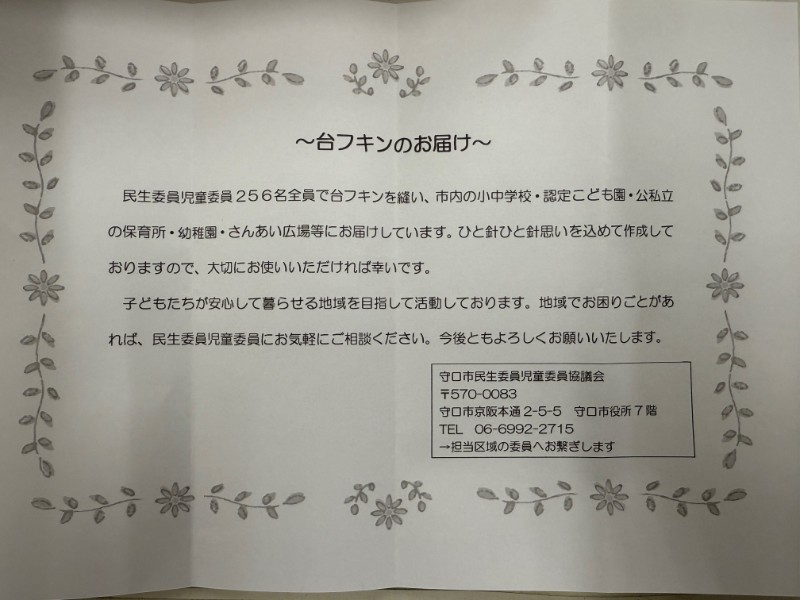 ～台フキンのお届け～
民生委員児童委員２５６名全員で台フキンを縫い、市内の小中学校・認定こども園・公私立
の保育所・幼稚園・さんあい広場等にお届けしています。ひと針ひと針思いを込めて作成して
おりますので、大切にお使いいただければ幸いです。
子どもたちが安心して暮らせる地域を目指して活動しております。地域でお困りごとがあ
れば、民生委員児童委員にお気軽にご相談ください。今後ともよろしくお願いいたします。
守口市民生委員児童委員協議会
〒570-0083
守口市京阪本通2-5-5　守口市役所7階
TEL　06-6992-2715
→担当区域の委員へお繋ぎします